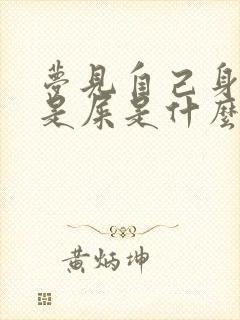 夢見自己身
是屎是什麼
黃炳坤